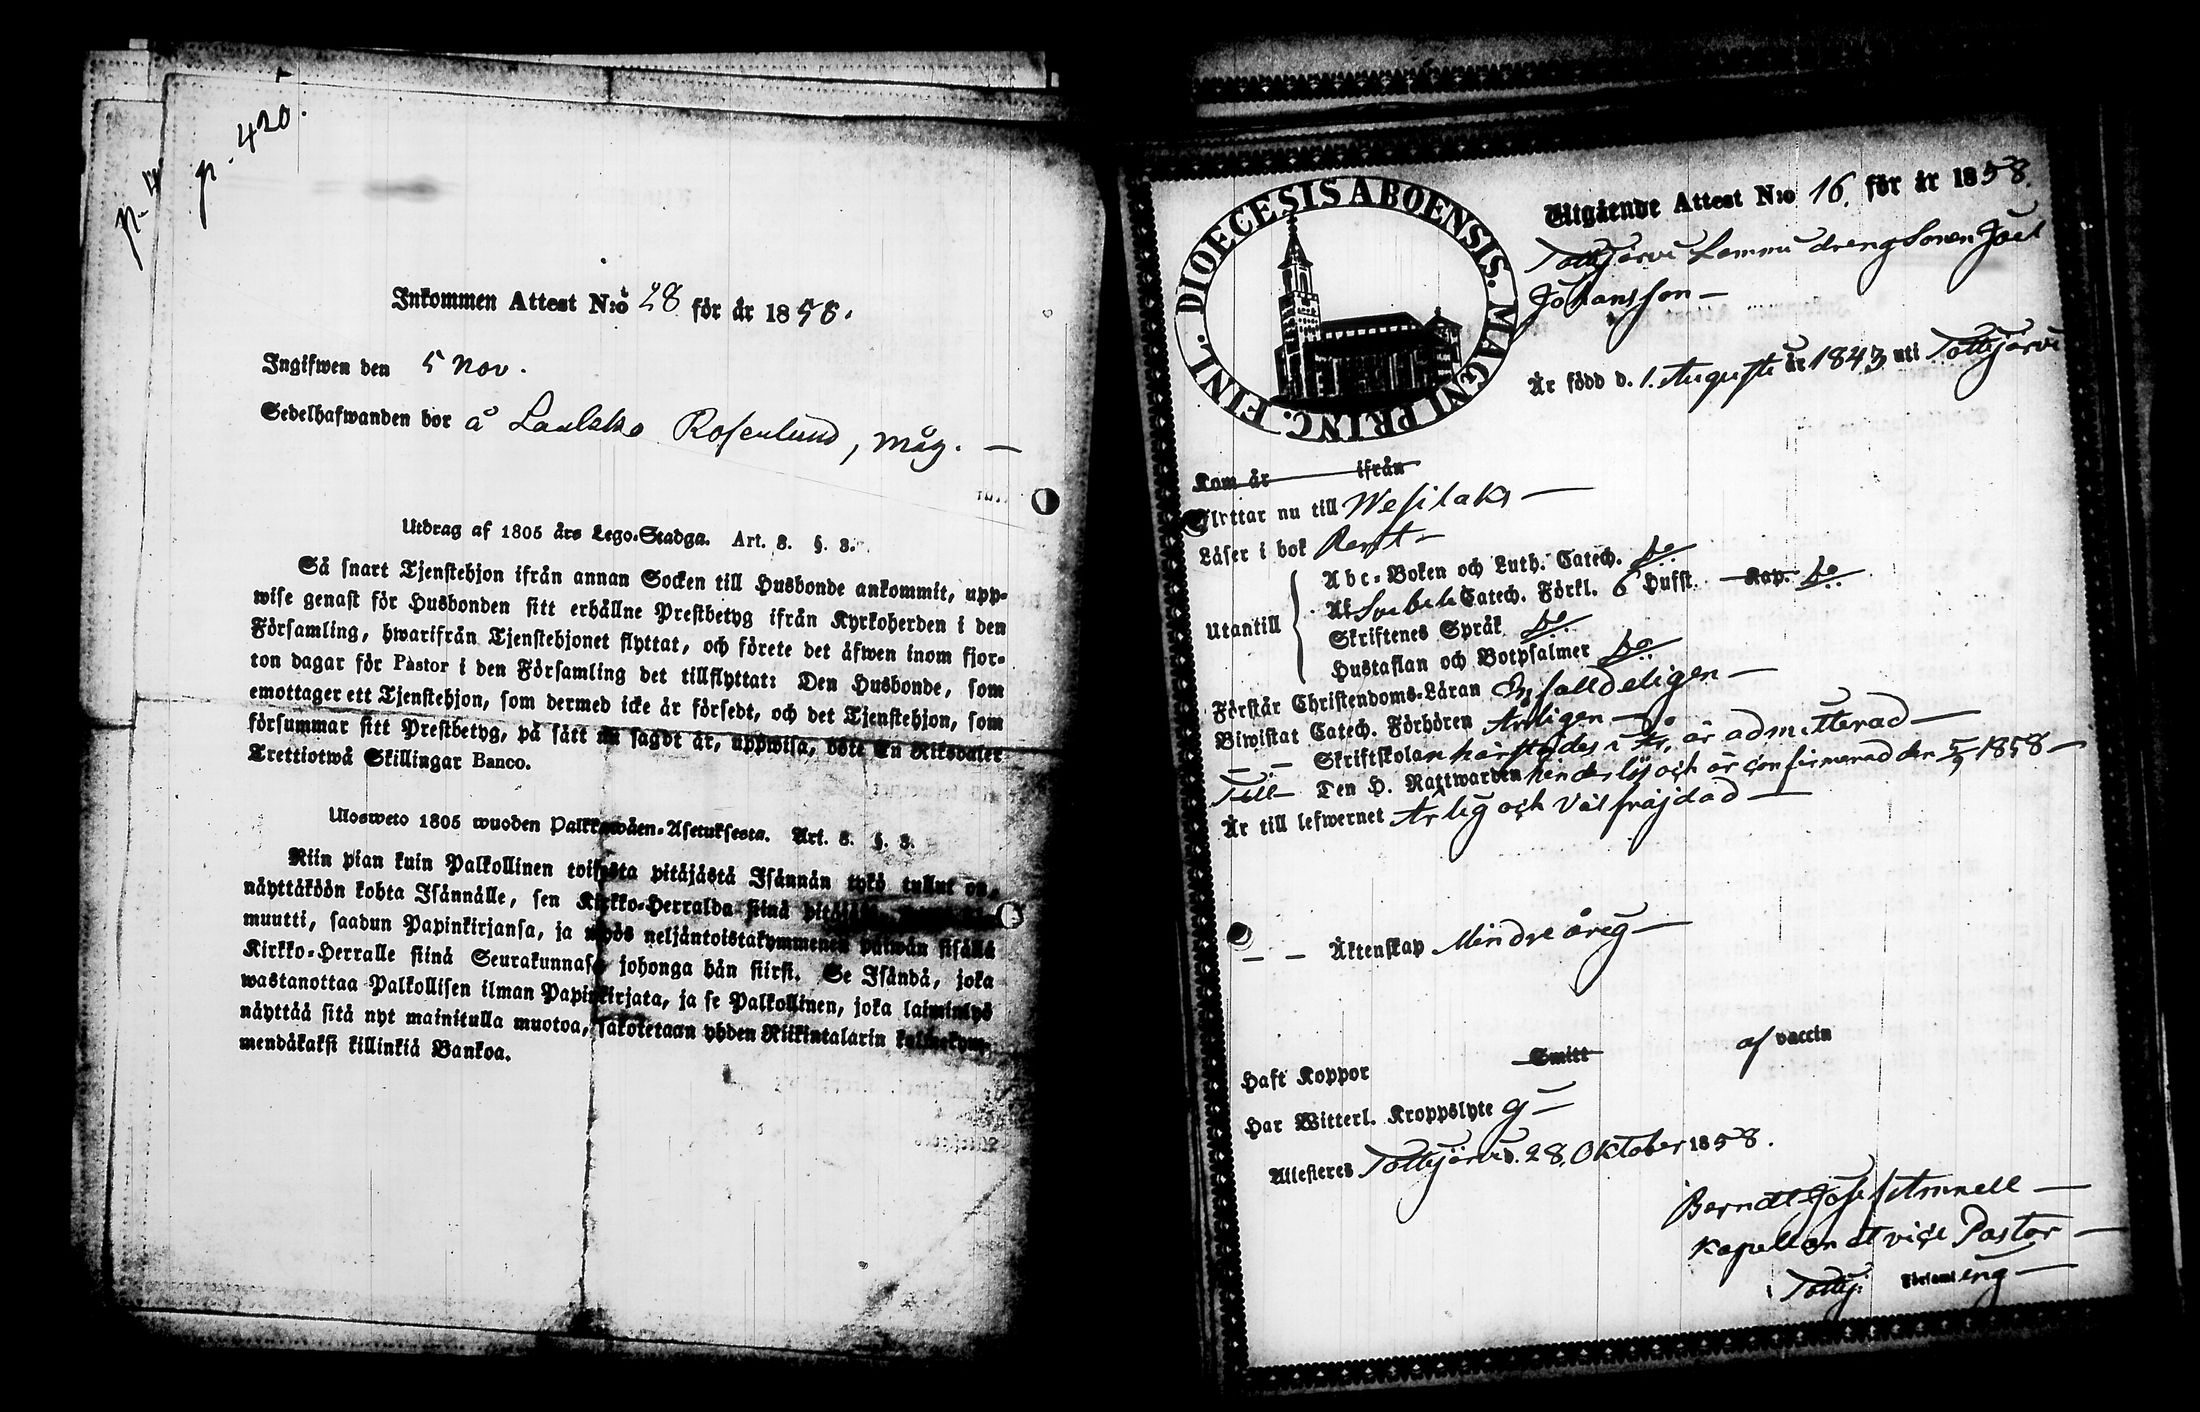 p. 420.
Inkommen Attest N:o 28 för år 1858.
Ingifwen den 5 Nov.
Sedelhafwanden bor å Laukko Rosenlund, måg. —
Utdrag af 1805 års Lego-Stadga. Art. 3. §. 3.
Så snart Tjenstehjon ifrån annan Socken till Husbonde ankommit, upp-
wise genast för Husbonden sitt erhållne Prestbetyg ifrån Kyrkoherden i den
Församling, hwarifrån Tjenstehjonet flyttat, och förete det äfwen inom fjor-
ton dagar för Pastor i den Församling det tillflyttat: Den Husbonde, som
emottager ett Tjenstehjon, som dermed icke är försedt, och det Tjenstehjon, som
försummar sitt Prestbetyg, på sätt nu sagdt är, uppwisa, böte En Riksdaler
Trettiotwå Skillingar Banco.
Ulosweto 1805 wuoden Palkkawäen-Asetuksesta. Art. 3. §. 3.
Niin pian kuin Palkollinen toisesta pitäjästä Isännän tykö tullut on,
näyttäköön kohta Isännälle, sen Kirkko-Herralda siinä
muutti, saadun Papinkirjansa, ja myös neljäntoistakymmenen päiwän sisällä
Kirkko-Herralle siinä Seurakunnasa johonga hän siirsi. Se Isändä, joka
wastanottaa Palkollisen ilman Papinkirjata, ja se Palkollinen, joka laiminlyö
näyttää sitä nyt mainitulla muotoa, sakotetaan yhden Riikintalarin kolmekym-
mendäkaksi killinkiä Bankoa.
DIOECESIS ABOENSIS. MAGNI PRINC. FINL.
Utgående Attest N:o 16. för år 1858.
Tottijärvi Lammi drengsonen Joel
Johansson —
Är född d. 1. Augusti år 1843 uti Tottijärvi
Kom år ifrån
Flyttar nu till Wesilaks —
Läser i bok Rent —
Utantill
Abc-Boken och Luth. Catech. do
Af Svebeli Catech. Förkl. 6 Hufst. Kap. do
Skriftenes Språk do
Hustaflan och Botpsalmer do
Förstår Christendoms-Läran Enfalldeligen —
Biwistat Catech. Förhören Årligen —
— — Skriftskolan härstädes i år, är admitterad —
Till — Den H. Nattwarden hinderlös och är confirmerad den 5/7 1858 —
Är till lefwernet Ärlig och väl fräjdad —
— — Äktenskap Minderårig —
Haft Koppor Smitt af vaccin
Har Witterl. Kroppslyte ej —
Attesteres Tottijärvi d. 28. Oktober 1858.
Berndt Josef Amnell —
Kapellan et vice Pastor —
Tottij: Församling —